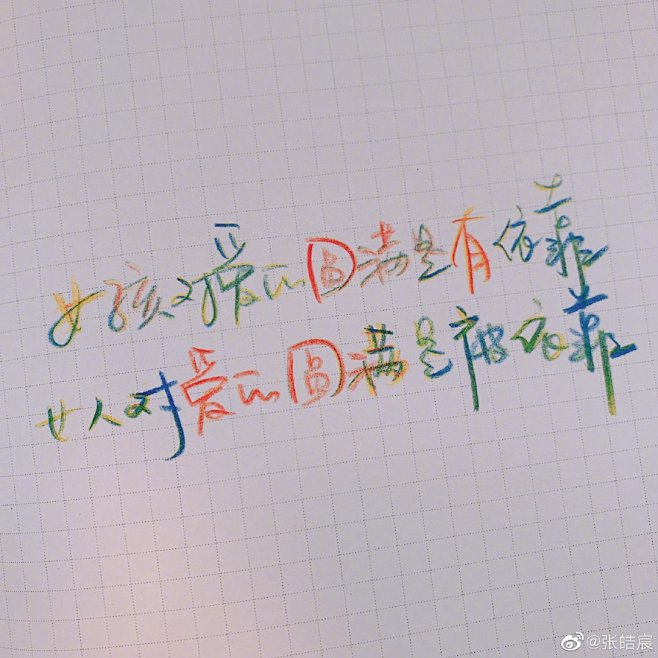 女孩对爱的圆满是有依靠
女人对爱的圆满是被依靠
@张皓宸